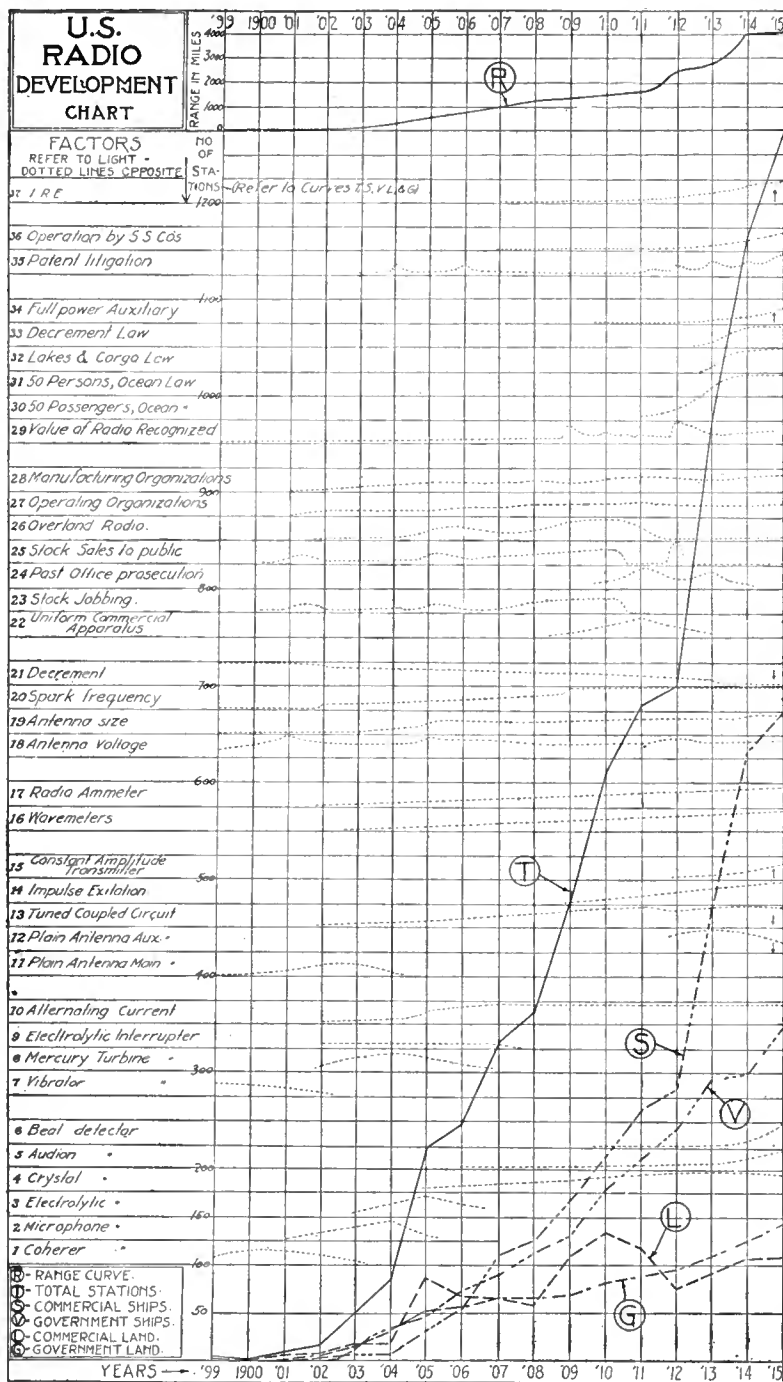 U.S.
RADIO
DEVELOPMENT
CHART
RANGE IN MILES
4000
3000
2000
1000
0
'99 1900 '01 '02 '03 '04 '05 '06 '07 '08 '09 '10 '11 '12 '13 '14 '15
R
FACTORS
REFER TO LIGHT -
DOTTED LINES OPPOSITE
NO
OF
STA-
TIONS
(Refer to Curves T.S.V.L.&G)
37 I R E
1200
36 Operation by S S Cos
35 Patent litigation
1100
34 Full power Auxiliary
33 Decrement Law
32 Lakes & Cargo Law
31 50 Persons, Ocean Law
1000
30 50 Passengers, Ocean "
29 Value of Radio Recognized
28 Manufacturing Organizations
900
27 Operating Organizations
26 Overland Radio.
25 Stock Sales to public
24 Post Office prosecution
800
23 Stock Jobbing.
22 Uniform Commercial
Apparatus
21 Decrement
700
20 Spark frequency
19 Antenna size
18 Antenna Voltage
600
17 Radio Ammeter
16 Wavemeters
15 Constant Amplitude
Transmitter
500
14 Impulse Exitation
13 Tuned Coupled Circuit
12 Plain Antenna Aux. "
11 Plain Antenna Main "
400
10 Alternating Current
9 Electrolytic Interrupter
8 Mercury Turbine "
300
7 Vibrator "
6 Beat detector
5 Audion "
200
4 Crystal "
3 Electrolytic "
150
2 Microphone "
1 Coherer "
100
50
T
S
V
L
G
R - RANGE CURVE.
T - TOTAL STATIONS.
S - COMMERCIAL SHIPS.
V - GOVERNMENT SHIPS.
L - COMMERCIAL LAND.
G - GOVERNMENT LAND.
YEARS → '99 1900 '01 '02 '03 '04 '05 '06 '07 '08 '09 '10 '11 '12 '13 '14 '15